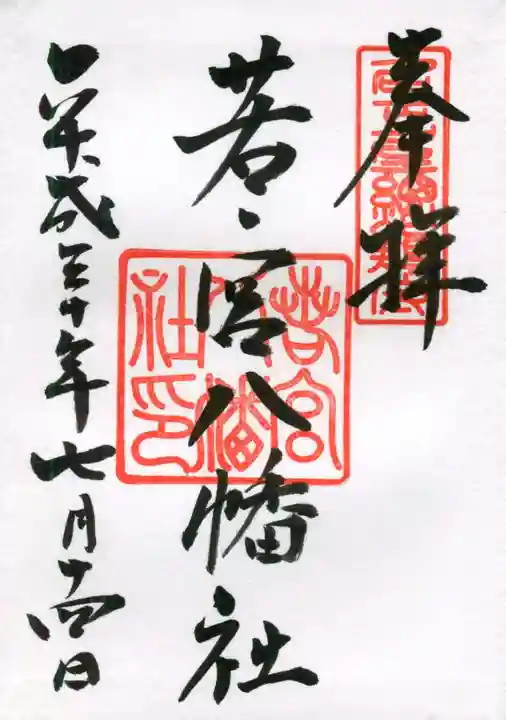 奉拝
若宮八幡社
若宮八幡社印
平成三十年七月十四日